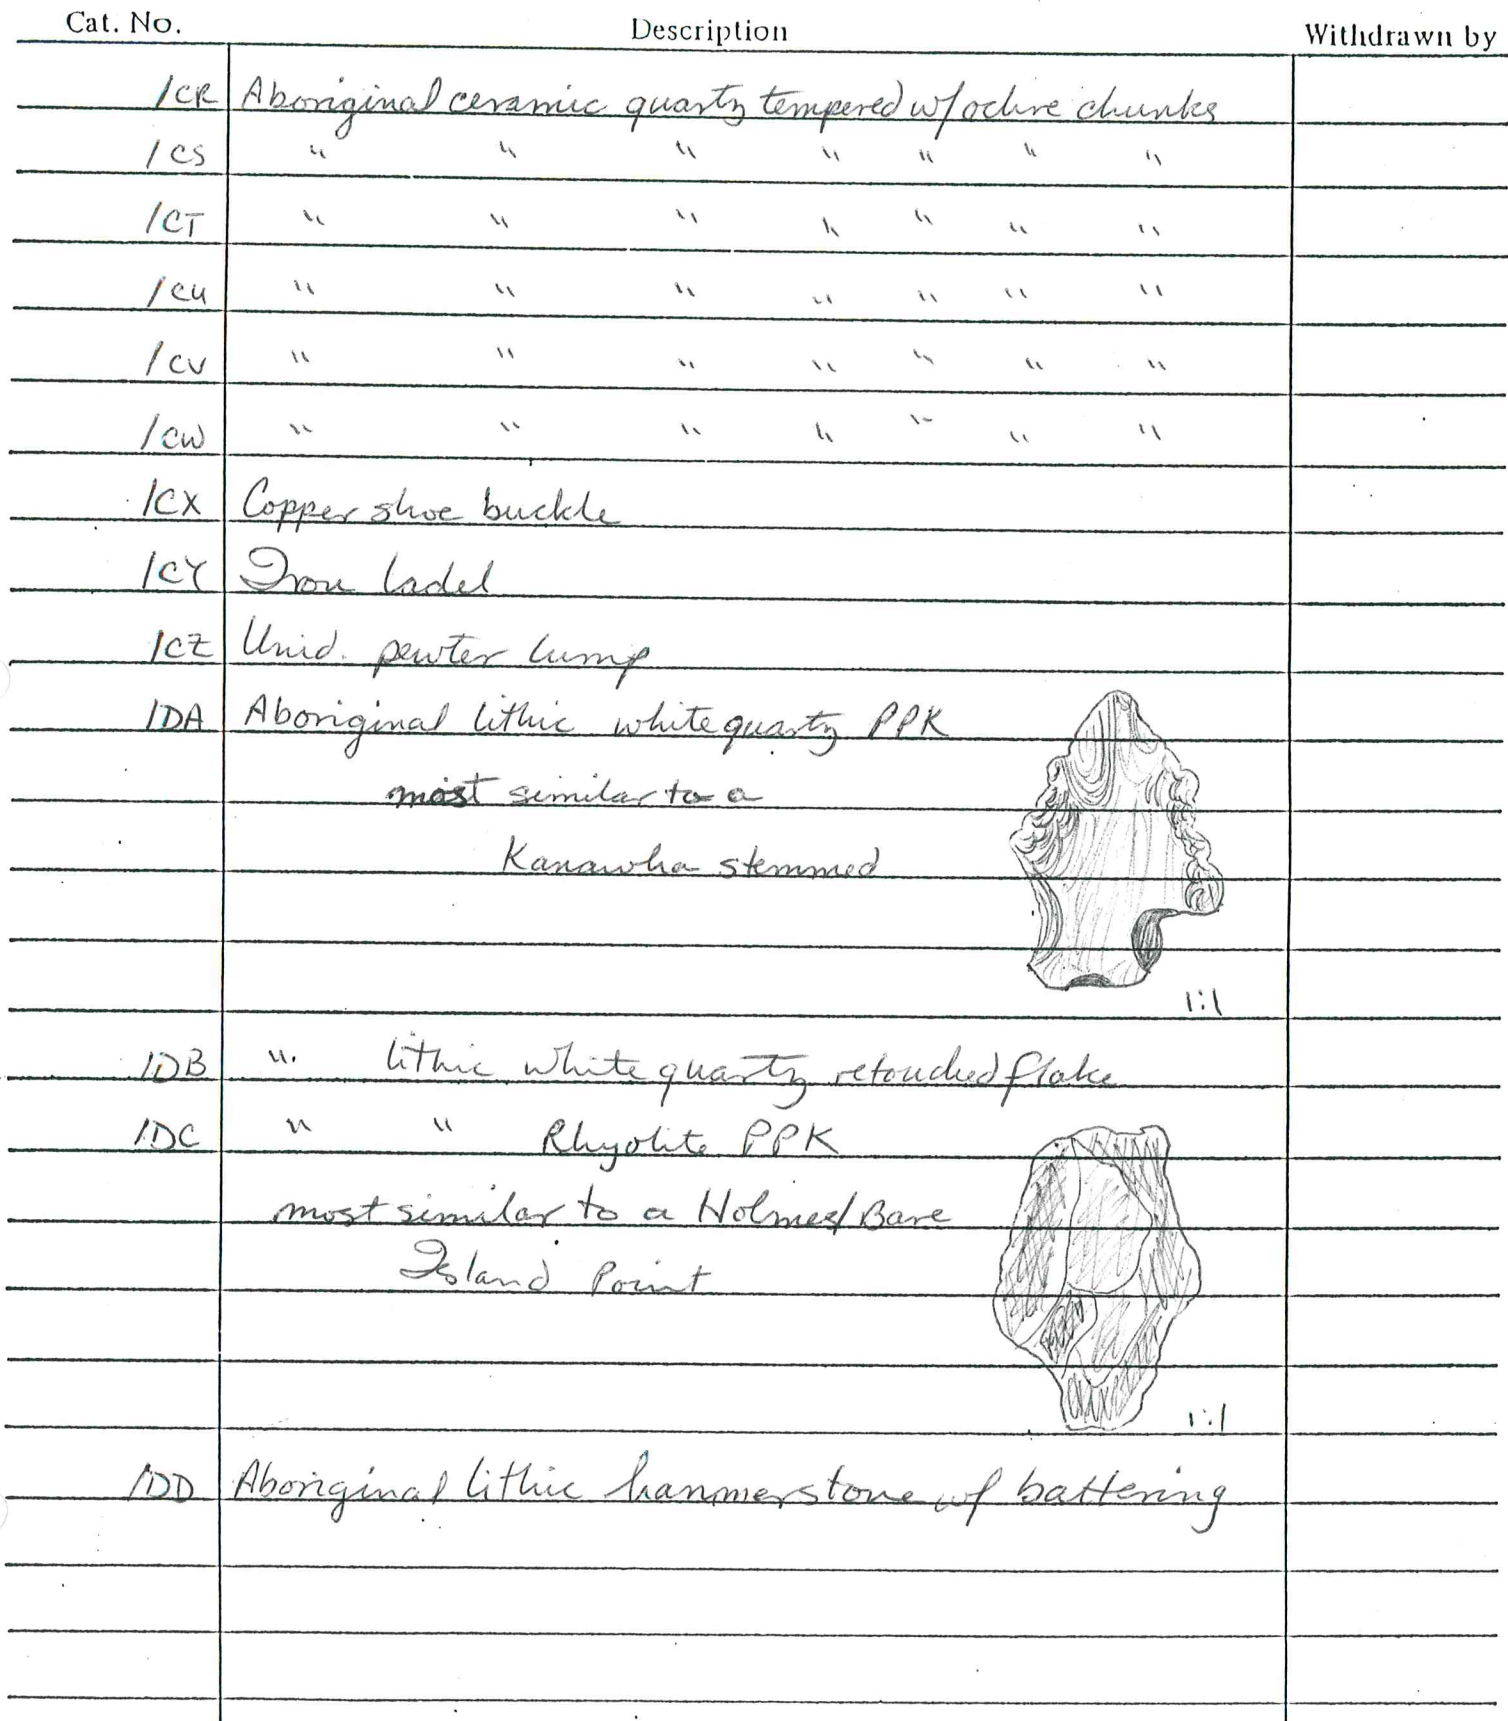 Cat. No. Description Withdrawn by
/CR Aboriginal ceramic quartz tempered w/ochre chunks
/CS " " " " " " "
/CT " " " " " " "
/CU " " " " " " "
/CV " " " " " " "
/CW " " " " " " "
/CX Copper shoe buckle
/CY Iron ladel
/CZ Unid. pewter lump
/DA Aboriginal lithic white quartz PPK
most similar to a
Kanawha stemmed
1:1
/DB " lithic white quartz retouched flake
/DC " " Rhyolite PPK
most similar to a Holmes/Bare
Island Point
1:1
/DD Aboriginal lithic hammerstone w/ battering